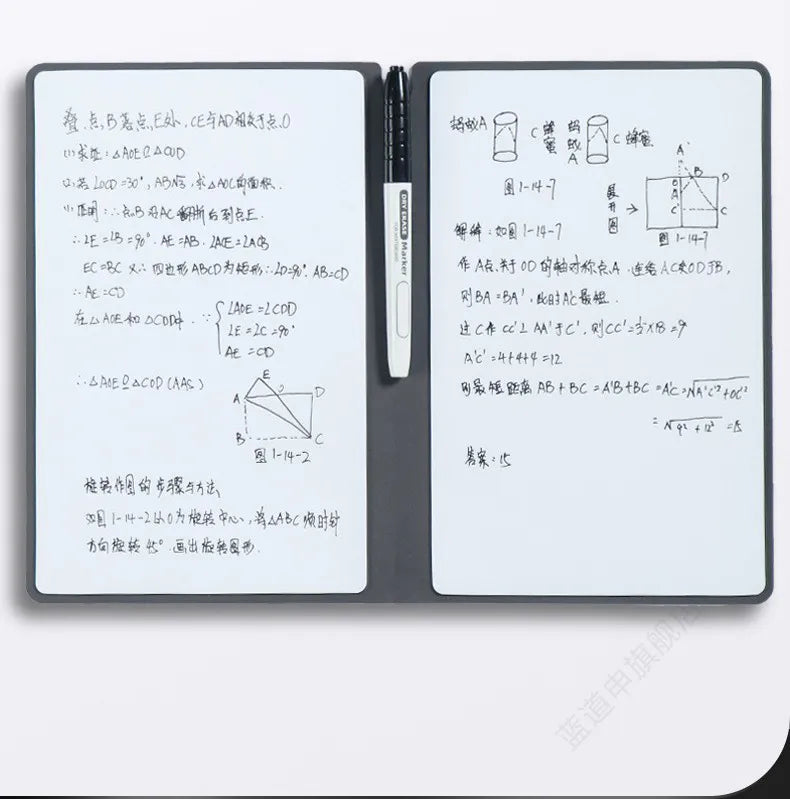 叠,点B落点E处,CE与AD相交于点O
(1)求证:△AOE≌△COD
(2)若∠OCD=30°,AB=√3,求△AOC的面积.
(1)证明:∵点B沿AC翻折后到点E.
∴∠E=∠B=90°.AE=AB.∠ACE=∠ACB
EC=BC 又∵四边形ABCD为矩形∴∠D=90°.AB=CD
∴AE=CD
在△AOE和△COD中.∵
∠AOE=∠COD
∠E=∠C=90°
AE=CD
∴△AOE≌△COD(AAS)
E
A
O
D
B
C
图1-14-2
旋转作图的步骤与方法、
如图1-14-2以O为旋转中心,将△ABC顺时针
方向旋转45°.画出旋转图形.
DRY ERASE Marker
蚂蚁A
C蜂蜜
蚂蚁A
C蜂蜜
图1-14-7
展开图
A'
O
B
D
A
C'
C
图1-14-7
解释:如图1-14-7
作A点关于OD的轴对称点A.连结AC交OD于B,
则BA=BA',此时A'C最短.
过C作CC'⊥AA'于C',则CC'=½×18=9
A'C'=4+4+4=12
则最短距离AB+BC=A'B+BC=A'C=√A'C'²+OC'²
=√9²+12²=15
答案:15
蓝道申旗舰店